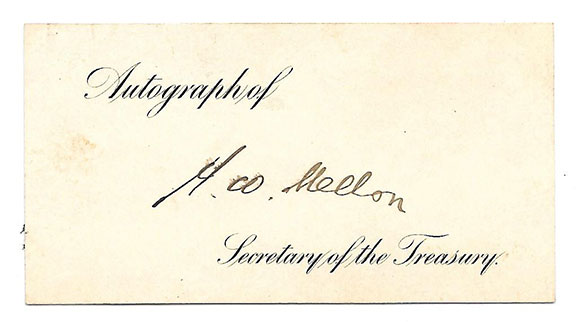 Autograph of
A. W. Mellon
Secretary of the Treasury.